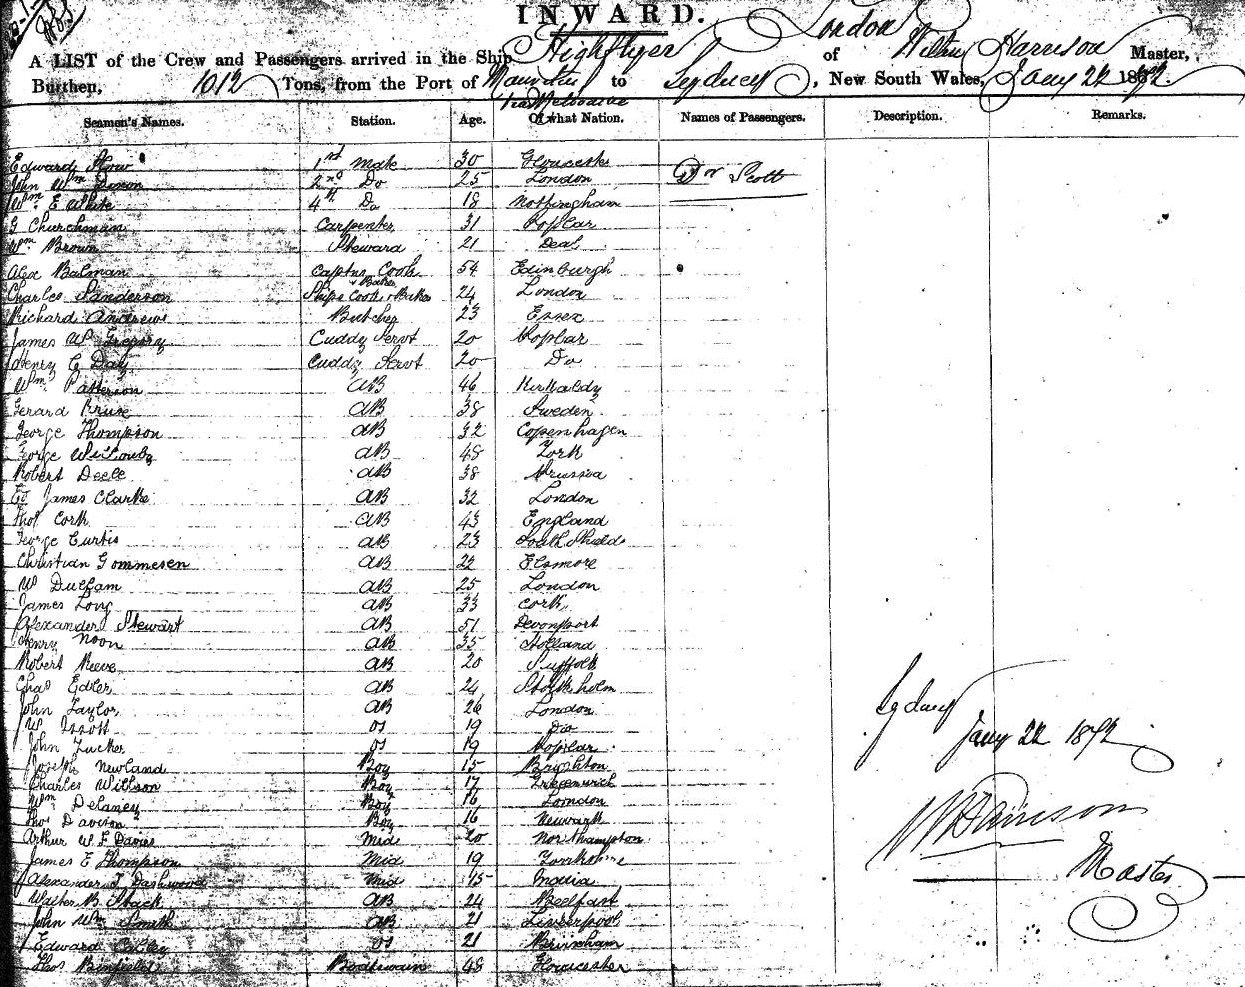 INWARD.
A LIST of the Crew and Passengers arrived in the Ship Highflyer of London Harrison Master,
Burthen, 1012 Tons, from the Port of to Sydney, New South Wales, Jany 22 1872.
via Melbourne
Seamen's Names. Station. Age. Of what Nation. Names of Passengers. Description. Remarks.
Edward 1st Mate 30 Gloucester Dr Scott
John Wm Dixon 2nd Do 25 London
Wm E White 4th Do 18 Nottingham
G Churchman Carpenter 31 Poplar
Wm Brown Steward 21 Deal
Alex Balman Captns Cook 54 Edinburgh
Charles Sanderson Ships Cook & Baker 24 London
Richard Andrews Butcher 23 Essex
James W Gregory Cuddy Servt 20 Poplar
Henry C Day Cuddy Servt 20 Do
Wm Patterson AB 46 Kirkaldy
Gerard Kruse AB 38 Sweden
George Thompson AB 32 Copenhagen
George AB 48 York
Robert Deele AB 38 Prussia
James Clarke AB 32 London
Thos Cork AB 43 England
George Curtis AB 23 South Shields
Christian Gommesen AB 22 Elsmore
W Dulham AB 25 London
James Long AB 33 Cork
Alexander Stewart AB 51 Devonport
Henry Noon AB 35 Holland
Robert Reeve AB 20 Suffolk
Chas Edler AB 24 Stockholm
John Taylor AB 26 London
W Issott OS 19 Do
John Tucker OS 19 Poplar
Joseph Newland Boy 15 Brighton
Charles Willson Boy 17 Greenwich
Wm Delaney Boy 16 London
Thos Davison Boy 16 Newark
Arthur W F Davies Mid 20 Northampton
James E Thompson Mid 19
Alexander J Dashwood Mid 15 India
Walter B Stack AB 24 Belfast
John Wm Smith AB 21 Liverpool
Edward OS 21
Thos Binfield Boatswain 48 Gloucester
Sydney
Jany 22 1872
Master